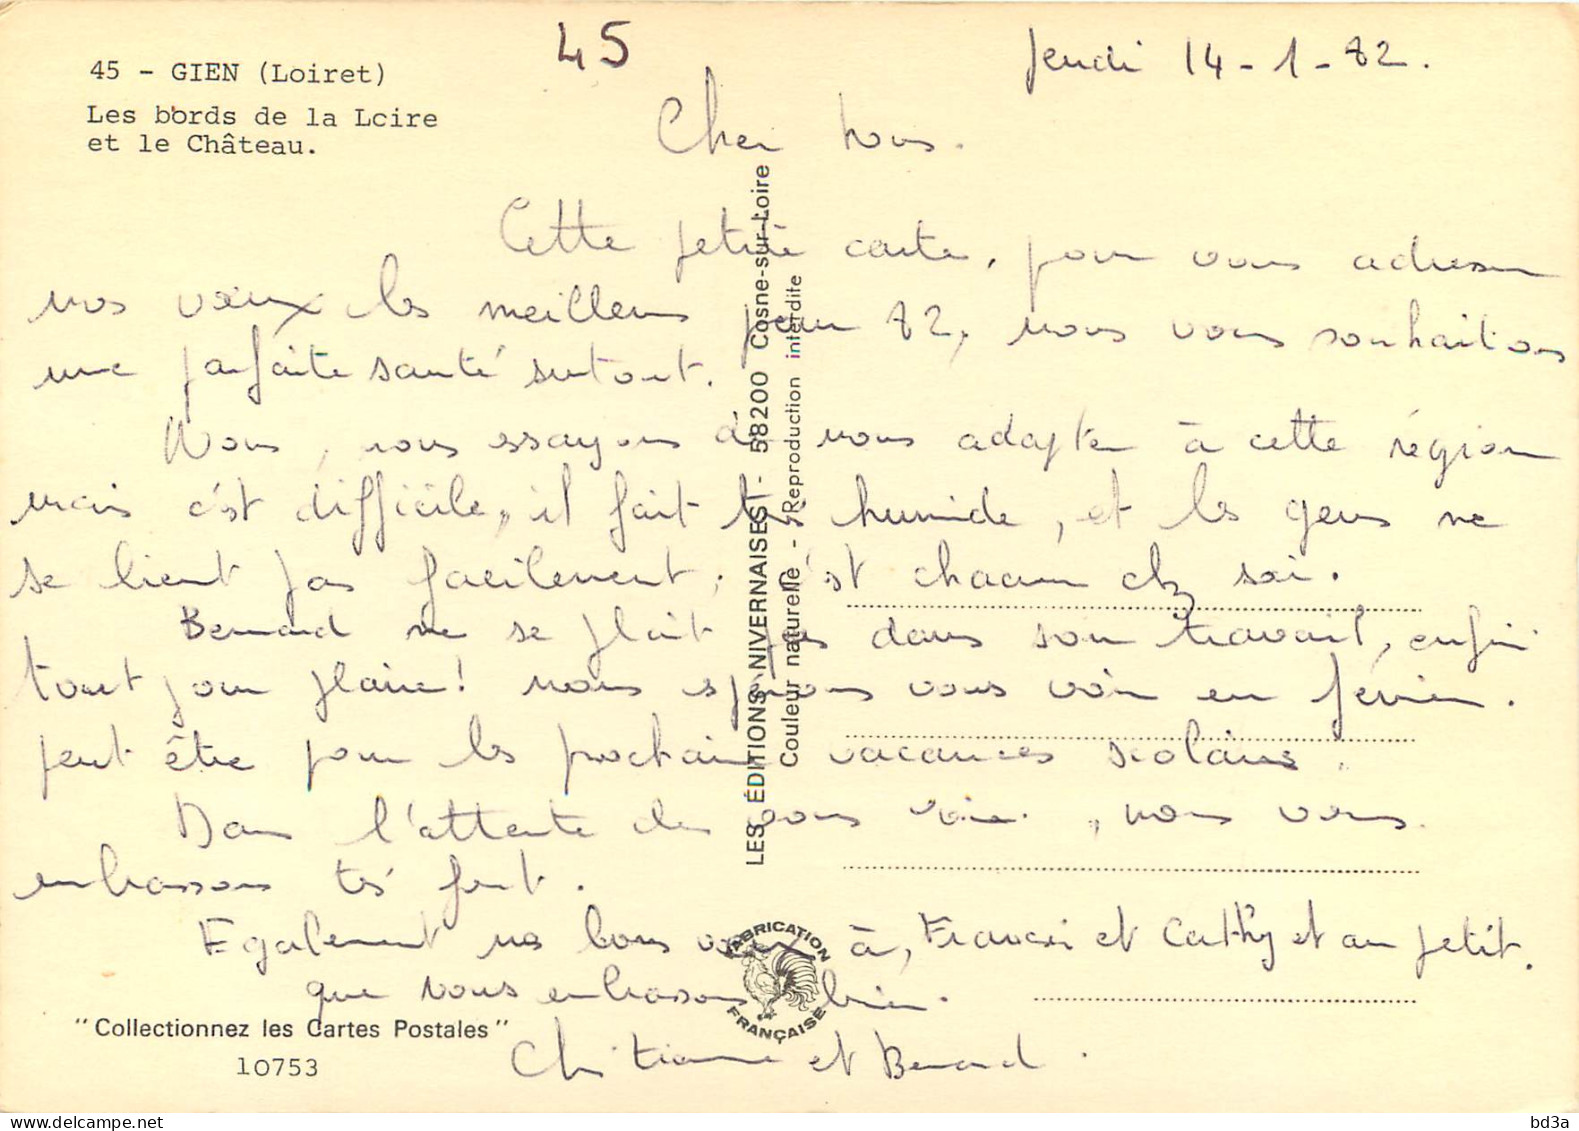 45
Jeudi 14-1-82.
45 - GIEN (Loiret)
Les bords de la Lcire
et le Château.
Cher tous.
Cette petite carte, pour vous adresser
nos vœux les meilleurs pour 82, nous vous souhaitons
une parfaite santé surtout.
Nous, nous essayons de nous adapter à cette région
mais c'est difficile, il fait très humide, et les gens ne
se lient pas facilement, c'est chacun chez soi.
Bernard ne se plait pas dans son travail, enfin
tout pour plaire! nous espérons vous voir en février.
peut être pour les prochaines vacances scolaires.
Dans l'attente de vous voir, nous vous
embrassons très fort.
Egalement nos bons vœux à, Francis et Cathy et au petit.
que nous embrassons bien.
Christiane et Bernard.
LES ÉDITIONS NIVERNAISES - 58200 Cosne-sur-Loire
Couleur naturelle - Reproduction interdite
FABRICATION
FRANÇAISE
"Collectionnez les Cartes Postales"
10753
bd3a